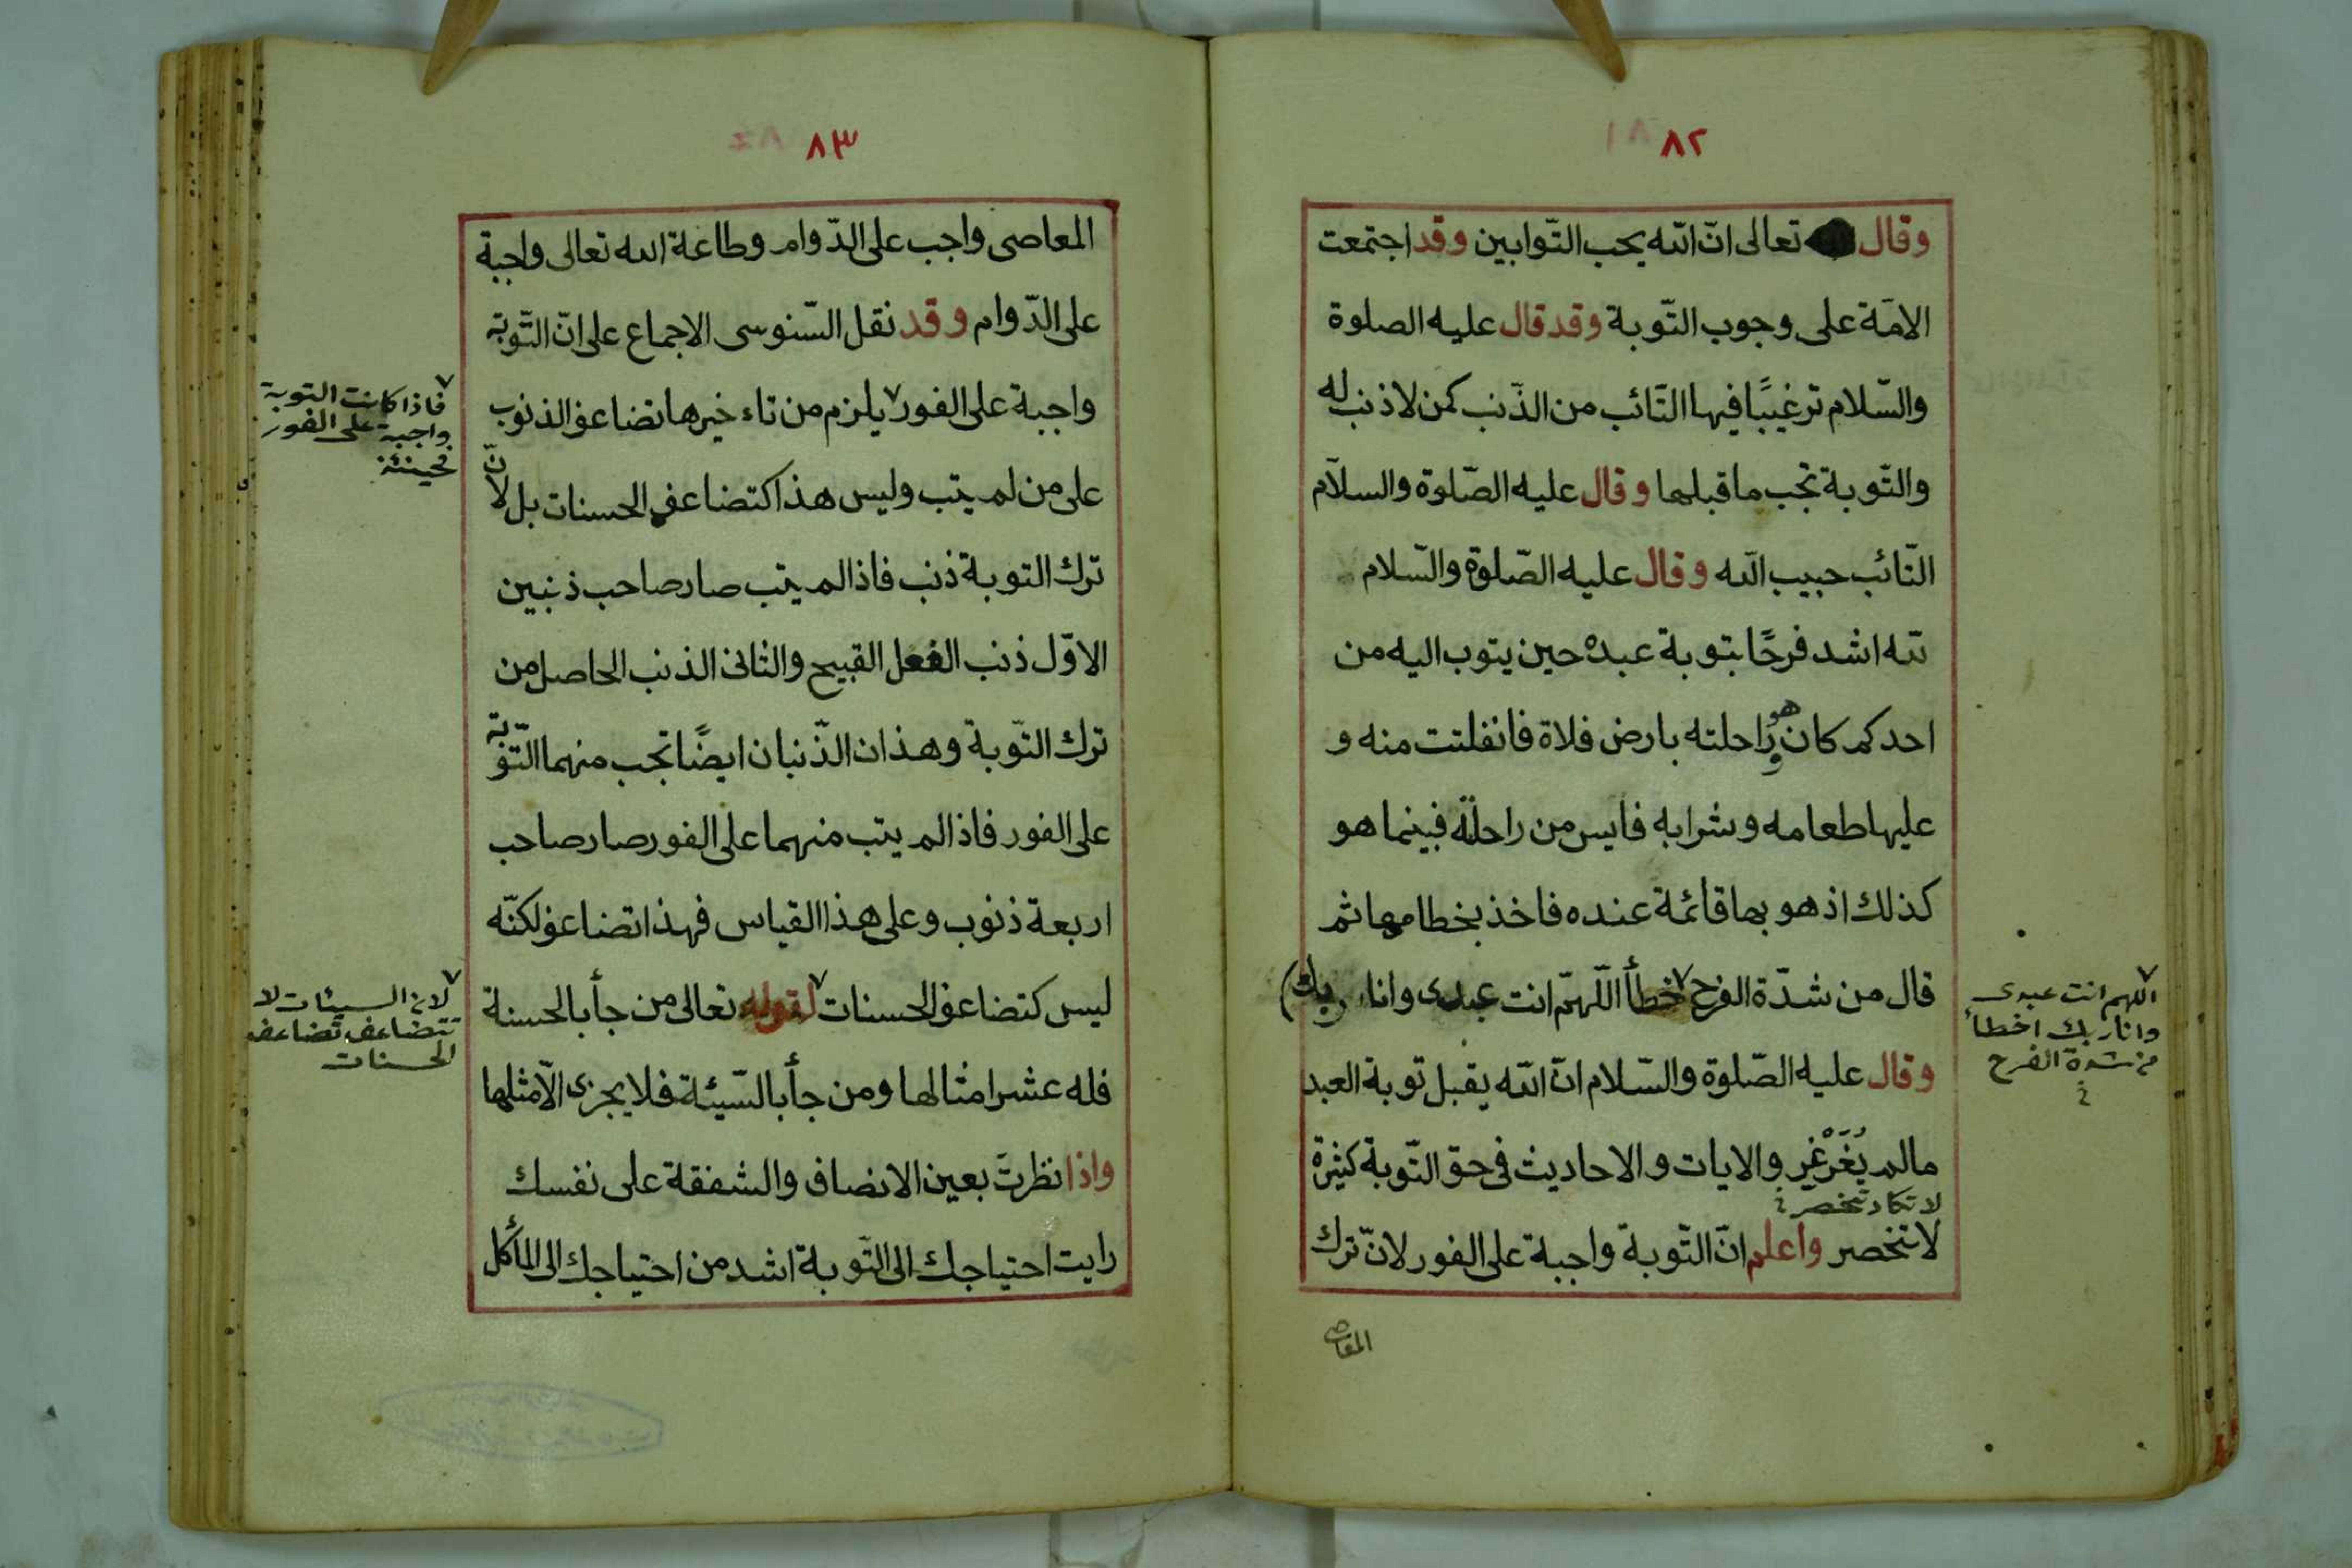 ٨٢
وقال تعالى انّ الله يحب التّوابين وقد اجتمعت
الامّة على وجوب التّوبة وقد قال عليه الصلوة
والسّلام ترغيبًا فيها التّائب من الذّنب كمن لا ذنب له
والتّوبة تجب ما قبلها وقال عليه الصّلوة والسلام
التّائب حبيب الله وقال عليه الصّلوة والسّلام
لله اشد فرحًا بتوبة عبده حين يتوب اليه من
احدكم كان هو وراحلته بارض فلاة فانفلتت منه و
عليها طعامه وشرابه فايس من راحلته فبينما هو
كذلك اذ هو بها قائمة عنده فاخذ بخطامها ثم
قال من شدّة الفرح خطأ اللّهمّ انت عبدى وانا ربك)
اللهم انت عبدى
وانا ربك اخطأ
من شدة الفرح
وقال عليه الصّلوة والسّلام انّ الله يقبل توبة العبد
مالم يُغَرْغِر والايات والاحاديث فى حق التّوبة كثيرة
لا تكاد تنحصر
لا تنحصر واعلم انّ التّوبة واجبة على الفور لانّ ترك
المعاصى
٨٣
المعاصى واجب على الدّوام وطاعة الله تعالى واجبة
على الدّوام وقد نقل السّنوسى الاجماع على انّ التّوبة
واجبة على الفور يلزم من تاء خيرها تضاعف الذنوب
فاذا كانت التوبة
واجبة على الفور
فحينئذ
على من لم يتب وليس هذا كتضاعف الحسنات بل لانّ
ترك التوبة ذنب فاذا لم يتب صار صاحب ذنبين
الاوّل ذنب الفعل القبيح والثانى الذنب الحاصل من
ترك التّوبة وهذان الذّنبان ايضًا تجب منهما التّوبة
على الفور فاذا لم يتب منهما على الفور صار صاحب
اربعة ذنوب وعلى هذا القياس فهذا تضاعف لكنّه
ليس كتضاعف الحسنات لقوله تعالى من جأ بالحسنة
لان السيئات لا
تتضاعف تضاعف
الحسنات
فله عشر امثالها ومن جأ بالسّيئة فلا يجزى الّا مثلها
واذا نظرتَ بعين الانصاف والشفقة على نفسك
رايت احتياجك الى التّوبة اشد من احتياجك الى المأكل